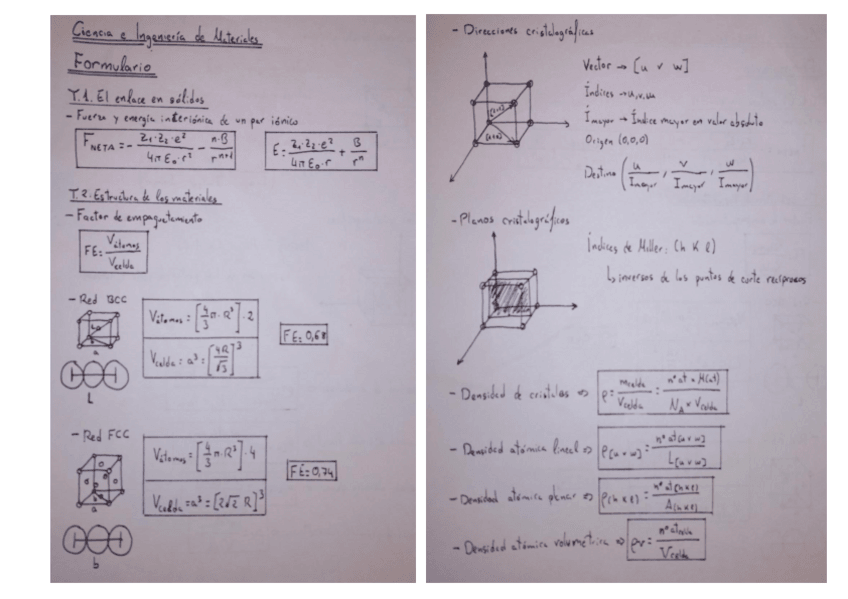 Ciencia e Ingeniería de Materiales
Formulario
T.1. El enlace en sólidos
- Fuerza y energía interiónica de un par iónico
F_NETA = - (z₁·z₂·e²)/(4πε₀·r²) - (n·B)/(rⁿ⁺¹)
E = (z₁·z₂·e²)/(4πε₀·r) + B/rⁿ
T.2. Estructura de los materiales
- Factor de empaquetamiento
FE = V_átomos/V_celda
- Red BCC
V_átomos = [4/3 π·R³]·2
V_celda = a³ = [4R/√3]³
FE = 0,68
a
L
- Red FCC
V_átomos = [4/3 π·R³]·4
V_celda = a³ = [2√2 R]³
FE = 0,74
a
b
- Direcciones cristalográficas
Vector → [u v w]
Índices → u,v,w
Imayor → Índice mayor en valor absoluto
Origen (0,0,0)
Destino (u/Imayor, v/Imayor, w/Imayor)
- Planos cristalográficos
Índices de Miller: (h k l)
↳ inversos de los puntos de corte recíprocos
- Densidad de cristales ⇒ ρ = m_celda/V_celda = (nº at × M(at))/(N_A × V_celda)
- Densidad atómica lineal ⇒ ρ[u v w] = nº at[u v w]/L[u v w]
- Densidad atómica planar ⇒ ρ(h k l) = nº at(h k l)/A(h k l)
- Densidad atómica volumétrica ⇒ ρv = nº at celda/V_celda